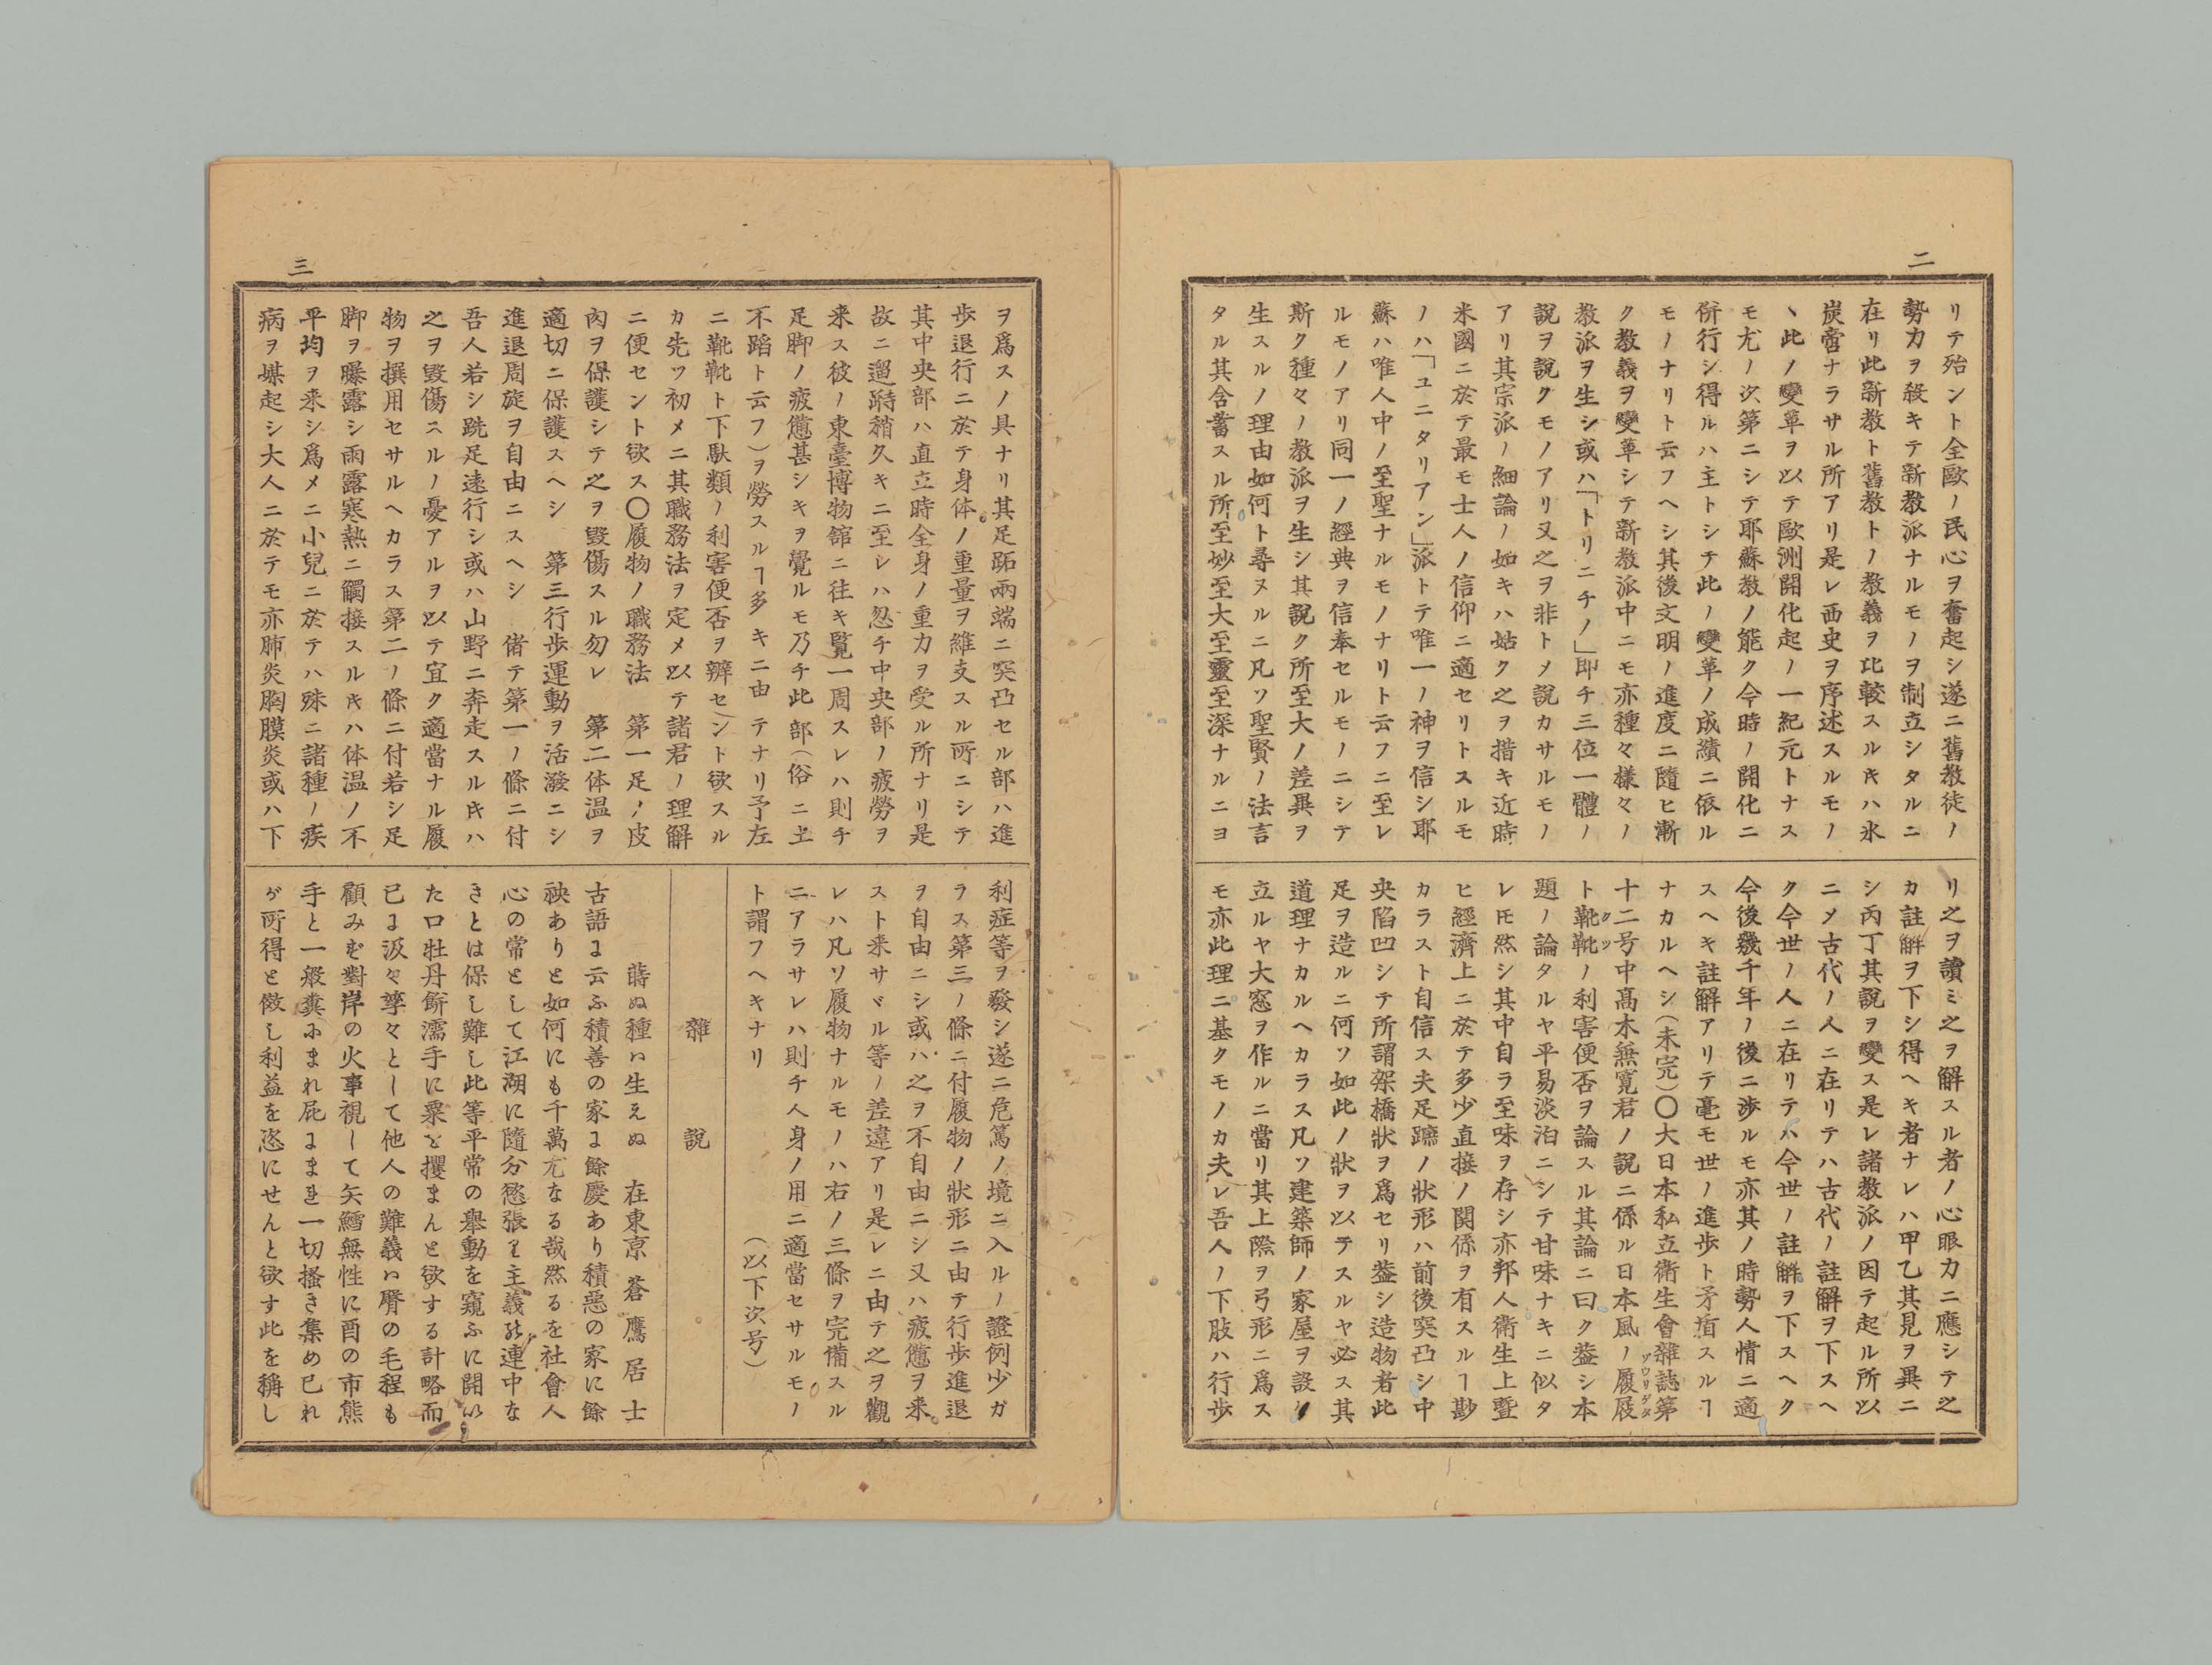 二
リテ殆ント全歐ノ民心ヲ奮起シ遂ニ舊敎徒ノ
勢力ヲ殺キテ新敎派ナルモノヲ制立シタルニ
在リ此新敎ト舊敎トノ敎義ヲ比較スルキハ氷
炭啻ナラサル所アリ是レ西史ヲ序述スルモノ
丶此ノ變革ヲ以テ歐洲開化起ノ一紀元トナス
モ尤ノ次第ニシテ耶蘇敎ノ能ク今時ノ開化ニ
併行シ得ルハ主トシテ此ノ變革ノ成績ニ依ル
モノナリト云フヘシ其後文明ノ進度ニ隨ヒ漸
ク敎義ヲ變革シテ新敎派中ニモ亦種々樣々ノ
敎派ヲ生シ或ハ「トリニチノ」即チ三位一體ノ
說ヲ說クモノアリ又之ヲ非トメ說カサルモノ
アリ其宗派ノ細論ノ如キハ姑ク之ヲ措キ近時
米國ニ於テ最モ士人ノ信仰ニ適セリトスルモ
ノハ「ユニタリアン」派トテ唯一ノ神ヲ信シ耶
蘇ハ唯人中ノ至聖ナルモノナリト云フニ至レ
ルモノアリ同一ノ經典ヲ信奉セルモノニシテ
斯ク種々ノ敎派ヲ生シ其說ク所至大ノ差異ヲ
生スルノ理由如何ト尋ヌルニ凡ソ聖賢ノ法言
タル其含蓄スル所至妙至大至靈至深ナルニヨ
リ之ヲ讀ミ之ヲ解スル者ノ心眼力ニ應シテ之
カ註解ヲ下シ得ヘキ者ナレハ甲乙其見ヲ異ニ
シ丙丁其說ヲ變ス是レ諸敎派ノ因テ起ル所以
ニメ古代ノ人ニ在リテハ古代ノ註解ヲ下スヘ
ク今世ノ人ニ在リテハ今世ノ註解ヲ下スヘク
今後幾千年ノ後ニ渉ルモ亦其ノ時勢人情ニ適
スヘキ註解アリテ毫モ世ノ進歩ト矛楯スルヿ
ナカルヘシ(未完)〇大日本私立衛生會雜誌第
十二号中高木無寬君ノ說ニ係ル日本風ノ履屐ゾウリゲタ
ト靴靴クツノ利害便否ヲ論スル其論ニ曰ク葢シ本
題ノ論タルヤ平易淡泊ニシテ甘味ナキニ似タ
レ𪜈然シ其中自ラ至味ヲ存シ亦邦人衛生上曁
ヒ經濟上ニ於テ多少直接ノ関係ヲ有スルヿ尠
カラスト自信ス夫足蹠ノ狀形ハ前後突凸シ中
央陷凹シテ所謂架橋狀ヲ爲セリ葢シ造物者此
足ヲ造ルニ何ソ如此ノ狀ヲ以テスルヤ必ス其
道理ナカルヘカラス凡ソ建築師ノ家屋ヲ設ケ
立ルヤ大窓ヲ作ルニ當リ其上際ヲ弓形ニ爲ス
モ亦此理ニ基クモノカ夫レ吾人ノ下肢ハ行歩
三
ヲ爲スノ具ナリ其足跖兩端ニ突凸セル部ハ進
歩退行ニ於テ身体ノ重量ヲ維支スル所ニシテ
其中央部ハ直立時全身ノ重力ヲ受ル所ナリ是
故ニ遛蹐稍久キニ至レハ忽チ中央部ノ疲勞ヲ
来ス彼ノ東臺博物舘ニ往キ覽一周スレハ則チ
足脚ノ疲憊甚シキヲ覺ルモ乃チ此部(俗ニ土
不蹈ト云フ)ヲ勞スルヿ多キニ由テナリ予左
ニ靴靴ト下駄類ノ利害便否ヲ辨セント欲スル
カ先ツ初メニ其職務法ヲ定メ以テ諸君ノ理解
ニ便セント欲ス〇履物ノ職務法 第一足ノ皮
內ヲ保護シテ之ヲ毀傷スル勿レ 第二体温ヲ
適切ニ保護スヘシ 第三行歩運動ヲ活潑ニシ
進退周旋ヲ自由ニスヘシ 偖テ第一ノ條ニ付
吾人若シ跣足遠行シ或ハ山野ニ奔走スルキハ
之ヲ毀傷スルノ憂アルヲ以テ宜ク適當ナル履
物ヲ撰用セサルヘカラス第二ノ條ニ付若シ足
脚ヲ曝露シ雨露寒熱ニ觸接スルキハ体温ノ不
平均ヲ来シ爲メニ小兒ニ於テハ殊ニ諸種ノ疾
病ヲ媒起シ大人ニ於テモ亦肺炎胸膜炎或ハ下
利症等ヲ發シ遂ニ危篤ノ境ニ入ルノ證例少カ
ラス第三ノ條ニ付履物ノ狀形ニ由テ行歩進退
ヲ自由ニシ或ハ之ヲ不自由ニシ又ハ疲憊ヲ来
スト来サヾル等ノ差違アリ是レニ由テ之ヲ觀
レハ凡ソ履物ナルモノハ右ノ三條ヲ完備スル
ニアラサレハ則チ人身ノ用ニ適當セサルモノ
ト謂フヘキナリ (以下次号)
雜說
蒔ぬ種ハ生えぬ 在東京 蒼鷹居士
古語ま云ふ積善の家ま餘慶あり積惡の家に餘
殃ありと如何にも千萬尤なる哉然るを社會人
心の常として江湖に隨分慾張り主義の連中な
きとは保し難し此等平常の擧動を窺ふに開い
た口牡丹餅濡手に粟を攫まんと欲する計略而
已ま汲々孳々として他人の難義ハ臀の毛程も
顧みず對岸の火事視して矢鱈無性に酉の市熊
手と一般糞ふまれ屁まままれ一切搔き集め已れ
が所得と做し利益を恣にせんと欲す此を稱し